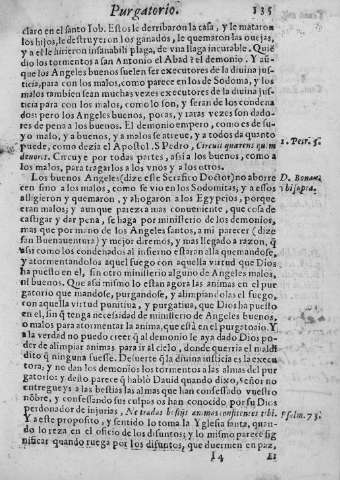 Purgatorio. 135
claro en el santo Iob. Estos le derribaron la casa, y le mataron
los hijos, le destruyeron los ganados, le quemaron las ouejas,
y a el le hirieron insanabili plaga, de vna llaga incurable. Quiē
dio los tormentos a san Antonio el Abad? el demonio. Y aũ-
que los Angeles buenos suelen ser executores de la diuina jus-
ticia, para con los malos, como parece en los de Sodoma, y los
malos tambien sean muchas vezes executores de la diuina jus-
ticia para con los malos, como lo son, y seran de los condena
dos: pero los Angeles buenos, pocas, y raras vezes son dado-
res de pena a los buenos. El demonio empero, como es de su-
yo malo, y a buenos, y a malos se atreue, y a todos da quanto
puede, como dezia el Apostol S. Pedro, Circuit quærens quem 1. Petr. 5.
deuoret. Circuye por todas partes, assi a los buenos, como a
los malos, para tragarlos a los vnos y a los otros.
Los buenos Angeles (dize este Serafico Doctor) no aborre D. Bonauē
cen sino a los malos, como se vio en los Sodomitas; y a essos vbi supra.
affligieron y quemaron, y ahogaron a los Egypcios, porque
eran malos; y aunque parezca mas conueniente, que cosa de
castigar y dar pena, se haga por ministerio de los demonios,
mas que por mano de los Angeles santos, a mi parecer (dize
san Buenauentura) y mejor diremos, y mas llegado a razon, q̃
assi como los condenados al infierno estaran alla quemandose,
y atormentandolos aquel fuego con aquella virtud que Dios
ha puesto en el, sin otro ministerio alguno de Angeles malos,
ni buenos. Que assi mismo lo estan agora las animas en el pur
gatorio que mandose, purgandose, y alimpiandolas el fuego,
con aquella virtud punitiua, y purgatiua, que Dios ha puesto
en el, sin q̃ tenga necessidad de ministerio de Angeles buenos,
o malos para atormentar la anima, que està en el purgatorio. Y
a la verdad no puedo creer q̃ al demonio le aya dado Dios po-
der de alimpiar animas para ir al cielo, donde querria el maldi
dito q̃ ninguna fuesse. De suerte q̃ la diuina justicia es la execu
tora, y no dan los demonios los tormentos a las almas del pur
gatorio: y desto parece q̃ hablò Dauid quando dixo, Señor no
entregueys a las bestias las almas que han confessado vuestro
nõbre, y confessando sus culpas os han conocido por su Dios
perdonador de injurias, Ne tradas bestijs animas confitentes tibi. Psalm. 73.
Y a este proposito, y sentido lo toma la Yglesia santa, quan-
do lo reza en el oficio de los difuntos; y lo mismo parece sig
nificar quando ruega por los difuntos, que duermen en paz,
I 4 El